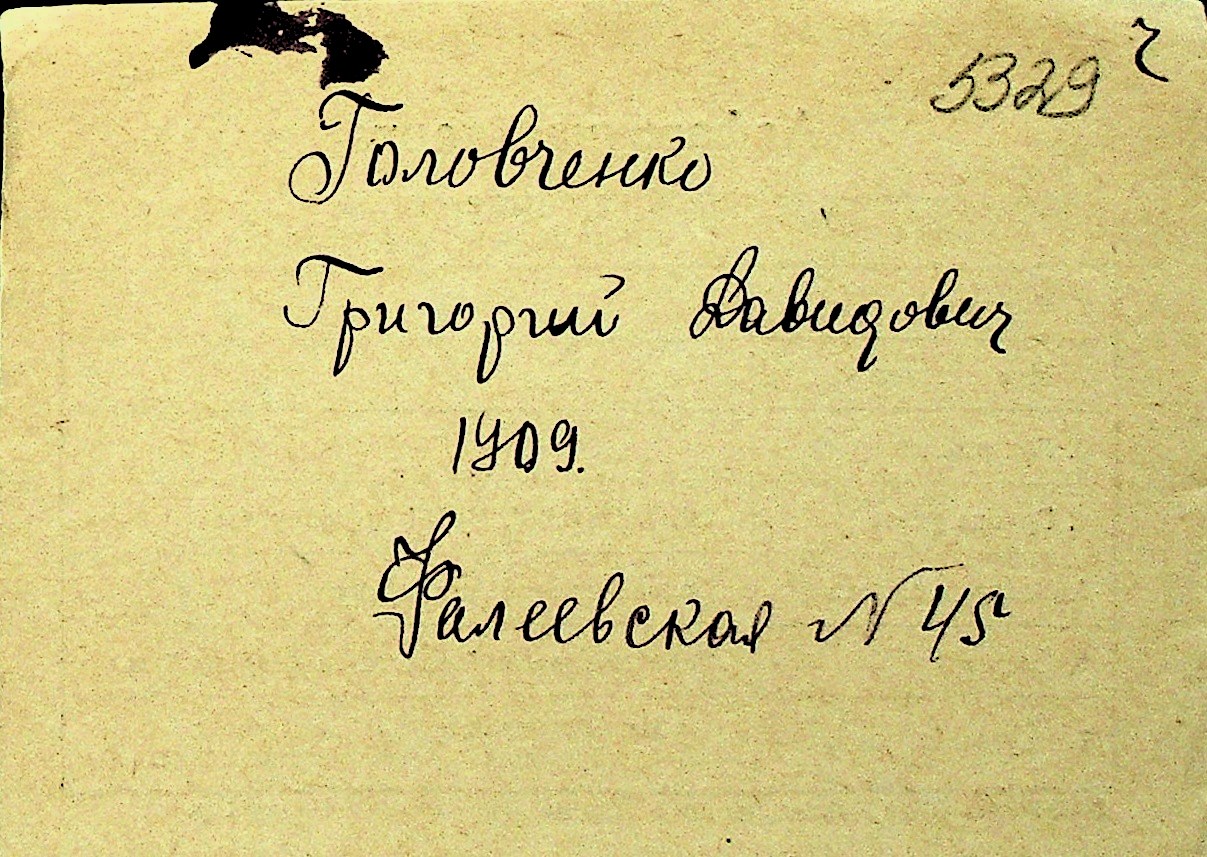 5329 ч
Головченко
Григорий Давидович
1909.
Фалеевская N 45